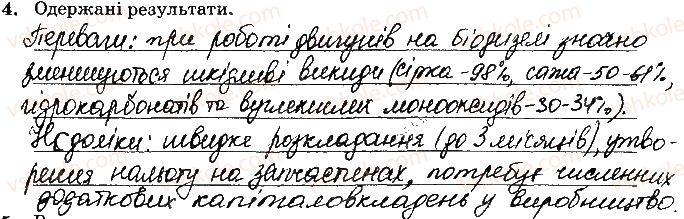 4. Одержані результати.
Переваги: при роботі двигунів на біодизелі значно
зменшуються шкідливі викиди (сірка-98%, сажа-50-61%,
гідрокарбонатів та вуглекислих монооксидів-30-34%).
Недоліки: швидке розкладання (до 3 місяців), утво-
рення нальоту на запчастинах, потребує численних
додаткових капіталовкладень у виробництво.